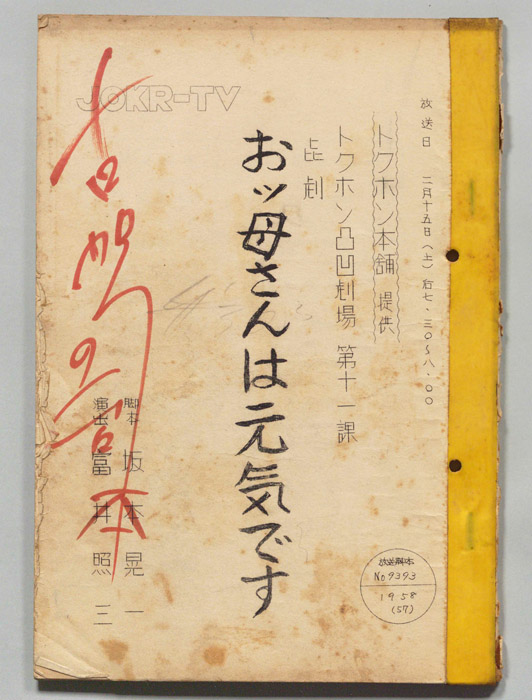 JOKR-TV
放送日 二月十五日(土)后七・三〇〜八・〇〇
トクホン本舗 提供
トクホン凸凹劇場 第十一課
㐂劇
おッ母さんは元気です
脚本 坂本晃一
演出 冨井照三
の台本
放送脚本
No9393
1958
(57)